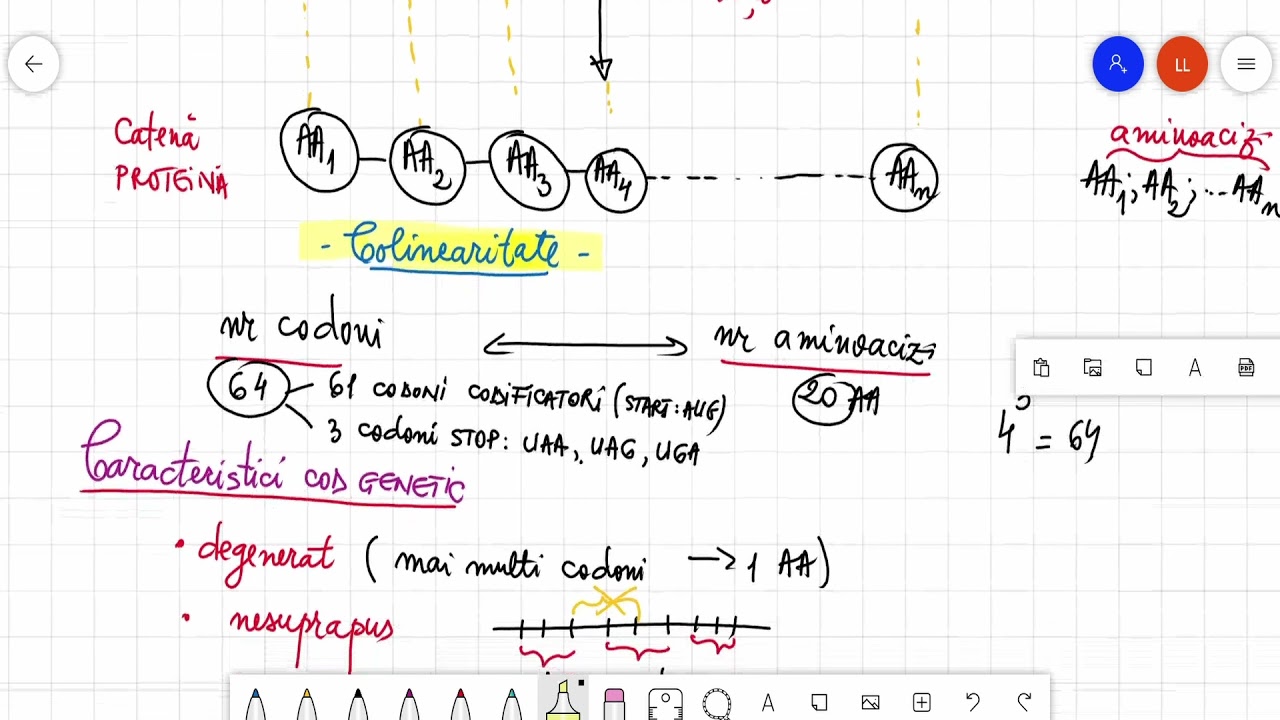 LL
aminoaciz
Catenă
PROTEINĂ
AA1 AA2 AA3 AA4 AAn
AA1; AA2; ... AAn
- Colinearitate -
nr codoni
nr aminoaciz
64
61 CODONI CODIFICATORI (START: AUG)
20 AA
3 codoni STOP: UAA, UAG, UGA
4³ = 64
Caracteristici COD GENETIC
• degenerat (mai multi codoni → 1 AA)
• nesuprapus
A
PDF
A